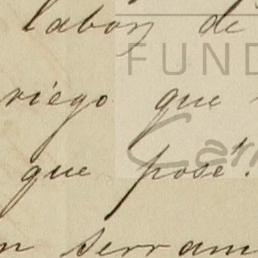 labor de
FUND
riego que
que posé.
n serram